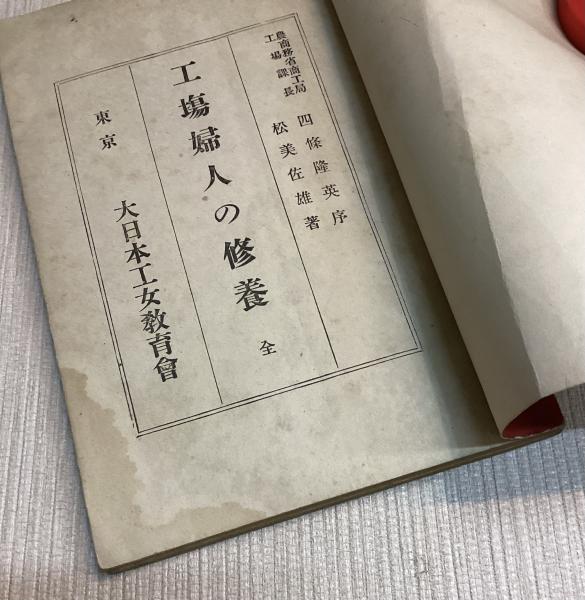 農商務省商工局
工場課長
四條隆英序
松美佐雄著
工塲婦人の修養 全
東京 大日本工女教育會